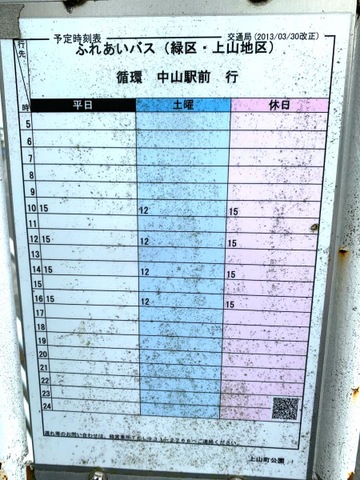 予定時刻表 交通局(2013/03/30改正)
行先 ふれあいバス(緑区・上山地区)
循環 中山駅前 行
時 平日 土曜 休日
5
6
7
8
9
10 15 12 15
11
12 15 12 15
13
14 15 12 15
15
16 15 12 15
17
18
19
20
21
22
23
24
遅れ等のお問い合わせは、
へご連絡ください
上山町公園